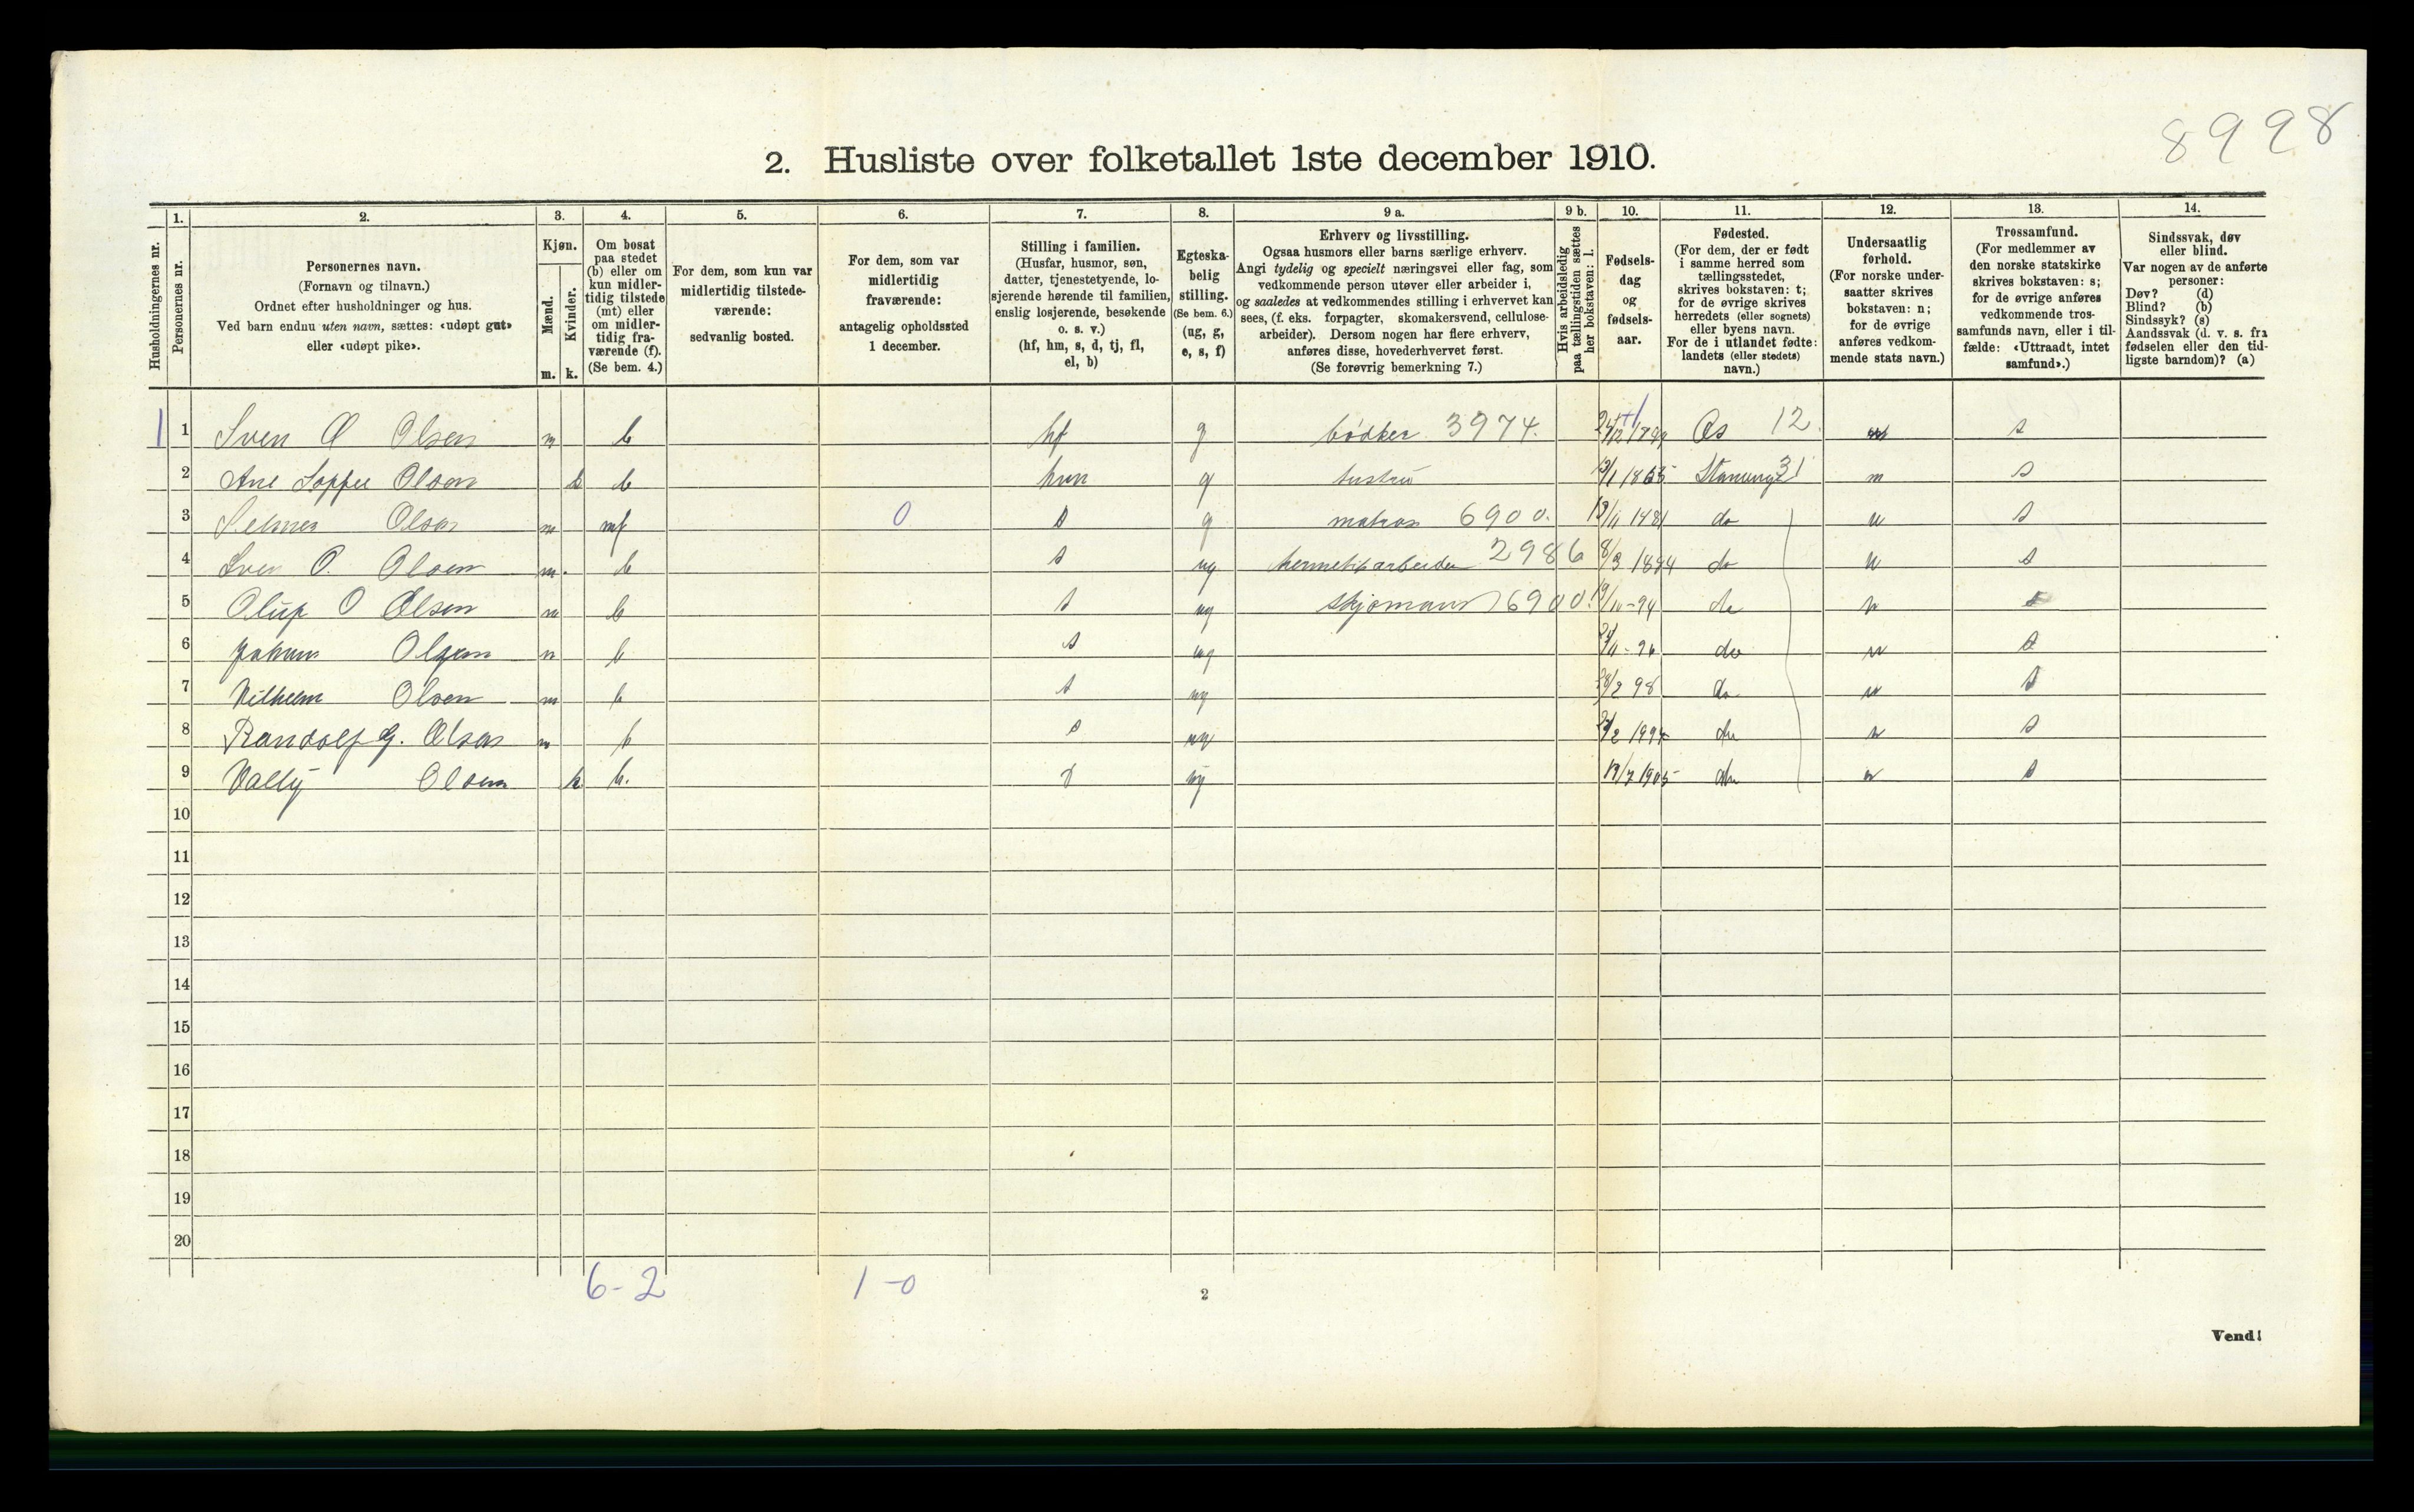 8998
2. Husliste over folketallet 1ste december 1910.
Husholdningernes nr.
1. Personernes nr.
2. Personernes navn.
(Fornavn og tilnavn.)
Ordnet efter husholdninger og hus.
Ved barn endnu uten navn, sættes: «udøpt gut»
eller «udøpt pike».
3. Kjøn.
Mænd. m.
Kvinder. k.
4. Om bosat
paa stedet
(b) eller om
kun midler-
tidig tilstede
(mt) eller
om midler-
tidig fra-
værende (f).
(Se bem. 4.)
5. For dem, som kun var
midlertidig tilstede-
værende:
sedvanlig bosted.
6. For dem, som var
midlertidig
fraværende:
antagelig opholdssted
1 december.
7. Stilling i familien.
(Husfar, husmor, søn,
datter, tjenestetyende, lo-
sjerende hørende til familien,
enslig losjerende, besøkende
o. s. v.)
(hf, hm, s, d, tj, fl,
el, b)
8. Egteska-
belig
stilling.
(Se bem. 6.)
(ug, g,
e, s, f)
9 a. Erhverv og livsstilling.
Ogsaa husmors eller barns særlige erhverv.
Angi tydelig og specielt næringsvei eller fag, som
vedkommende person utøver eller arbeider i,
og saaledes at vedkommendes stilling i erhvervet kan
sees, (f. eks. forpagter, skomakersvend, cellulose-
arbeider). Dersom nogen har flere erhverv,
anføres disse, hovederhvervet først.
(Se forøvrig bemerkning 7.)
9 b. Hvis arbeidsledig
paa tællingstiden sættes
her bokstaven: l.
10. Fødsels-
dag
og
fødsels-
aar.
11. Fødested.
(For dem, der er født
i samme herred som
tællingsstedet,
skrives bokstaven: t;
for de øvrige skrives
herredets (eller sognets)
eller byens navn.
For de i utlandet fødte:
landets (eller stedets)
navn.)
12. Undersaatlig
forhold.
(For norske under-
saatter skrives
bokstaven: n;
for de øvrige
anføres vedkom-
mende stats navn.)
13. Trossamfund.
(For medlemmer av
den norske statskirke
skrives bokstaven: s;
for de øvrige anføres
vedkommende tros-
samfunds navn, eller i til-
fælde: «Uttraadt, intet
samfund».)
14. Sindssvak, døv
eller blind.
Var nogen av de anførte
personer:
Døv? (d)
Blind? (b)
Sindssyk? (s)
Aandssvak (d. v. s. fra
fødselen eller den tid-
ligste barndom)? (a)
1 1 Sven O Olsen m b hf g bødker 3974. As 12. s
2 Ane Olsen k b hm g hustru 31 s
3 Olsen m mf 0 s g matros 6900. do n s
4 Sven O. Olsen m. b s ug hermetikarbeider 2986 8/3 1894 do n s
5 Oluf O Olsen m b s ug 6900. do n s
6 Johan Olsen m b s ug do n s
7 Vilhelm Olsen m b s ug 28/2 98 do n s
8 Randolf G. Olsen m b s ug do n s
9 Vally Olsen k. b. d ug 19/7 1905 do n s
10
11
12
13
14
15
16
17
18
19
20
6-2 1-0
2
Vend!